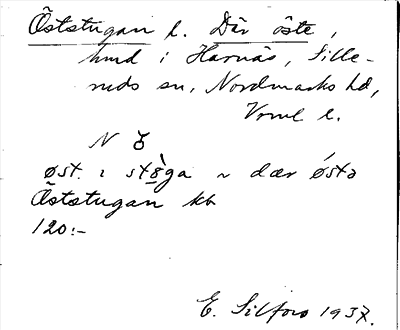 Öststugan l. Där öste,
hmd i Harnäs, Sille-
ruds sn, Nordmarks hd,
Vrml l.
N
øst. i støga ~ dær østə
Öststugan kb
120:-
E. Silfors 1937.